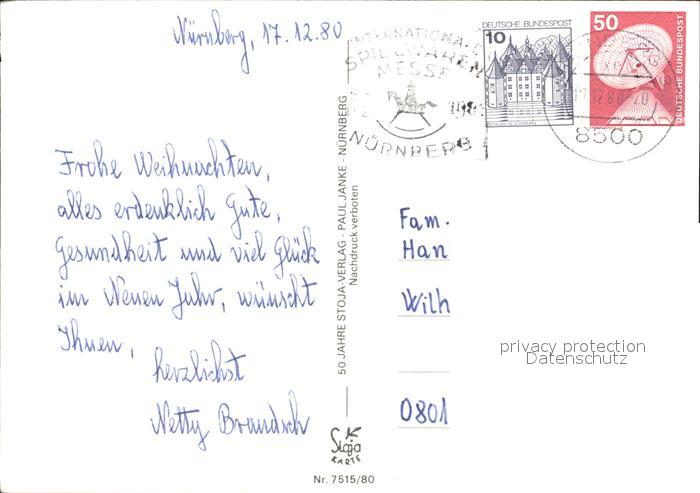 Nürnberg, 17.12.80
Frohe Weihnachten,
alles erdenklich Gute,
Gesundheit und viel Glück
im Neuen Jahr, wünscht
Ihnen,
herzlichst
Netty Brandsch
50 JAHRE STOJA-VERLAG - PAUL JANKE - NÜRNBERG
Nachdruck verboten
Stoja
KARTE
Nr. 7515/80
INTERNATIONALE
SPIELWAREN
MESSE
NÜRNBERG
DEUTSCHE BUNDESPOST
10
50
DEUTSCHE BUNDESPOST
8500
Fam.
Han
Wilh
0801
privacy protection
Datenschutz